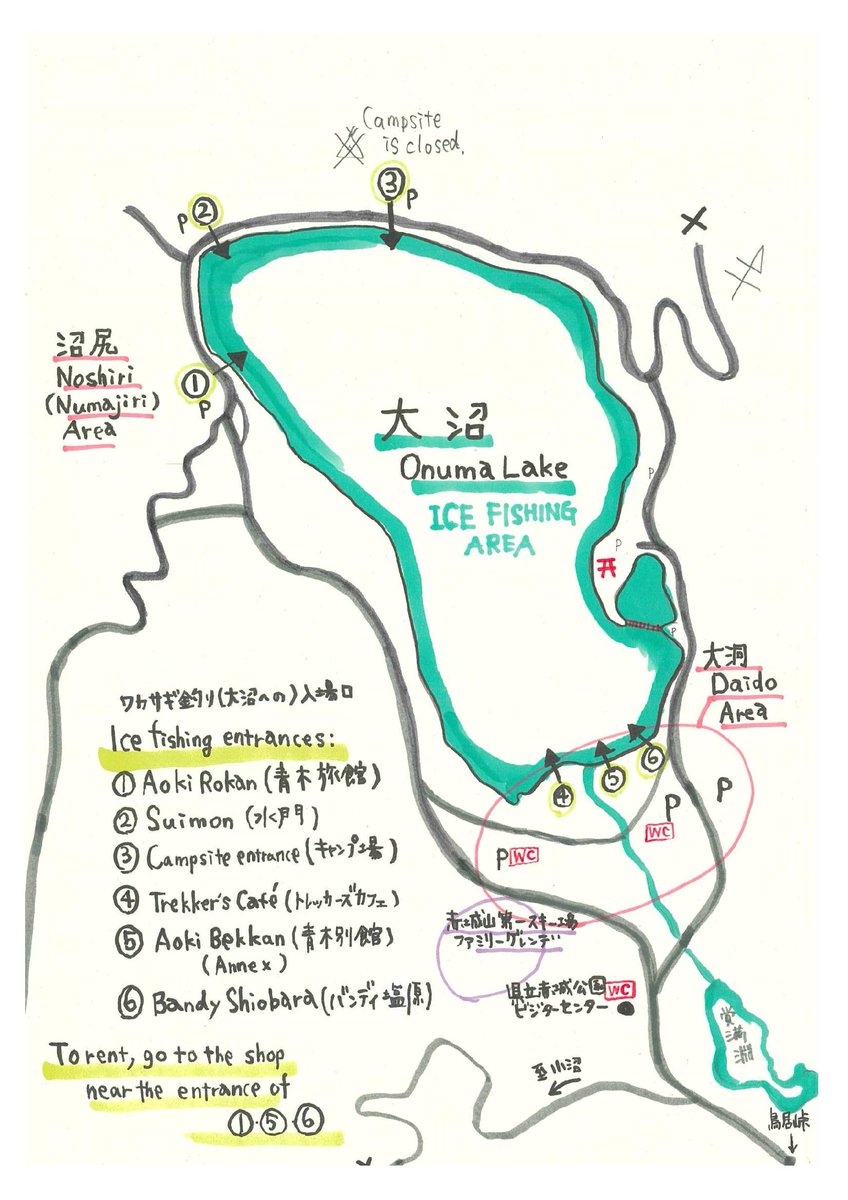 Campsite
is closed.
③
P
P ②
沼尻
Noshiri
(Numajiri)
Area
①
P
大沼
Onuma Lake
ICE FISHING
AREA
P
P
P
大洞
Daido
Area
ワカサギ釣り(大沼への)入場口
Ice fishing entrances:
① Aoki Rokan (青木旅館)
② Suimon (水門)
③ Campsite entrance (キャンプ場)
④ Trekker's Café (トレッカーズカフェ)
⑤ Aoki Bekkan (青木別館)
(Annex)
⑥ Bandy Shiobara (バンディ塩原)
To rent, go to the shop
near the entrance of
①・⑤・⑥
④
⑤
⑥
P
P
WC
P WC
赤城山第一スキー場
ファミリーゲレンデ
県立赤城公園 WC
ビジターセンター
覚満淵
至小沼
鳥居峠